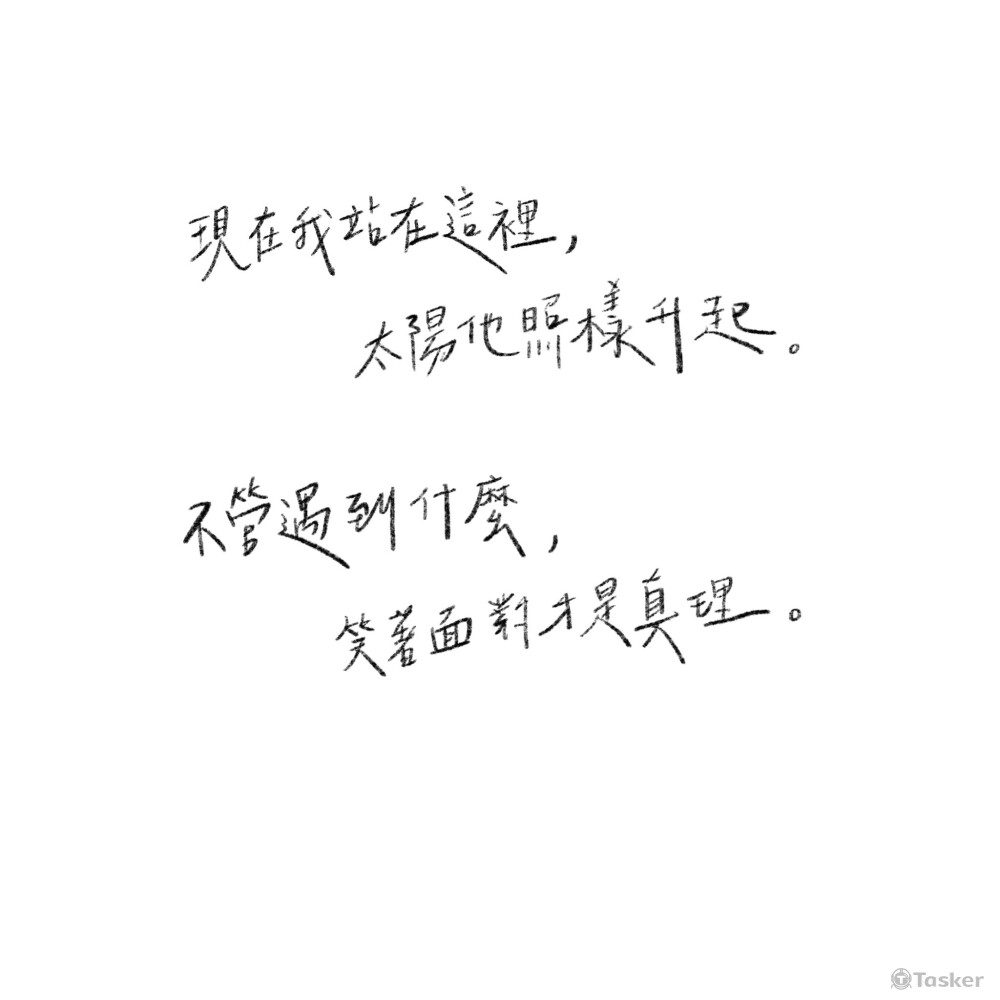 現在我站在這裡，
太陽他照樣升起。
不管遇到什麼，
笑著面對才是真理。
Tasker